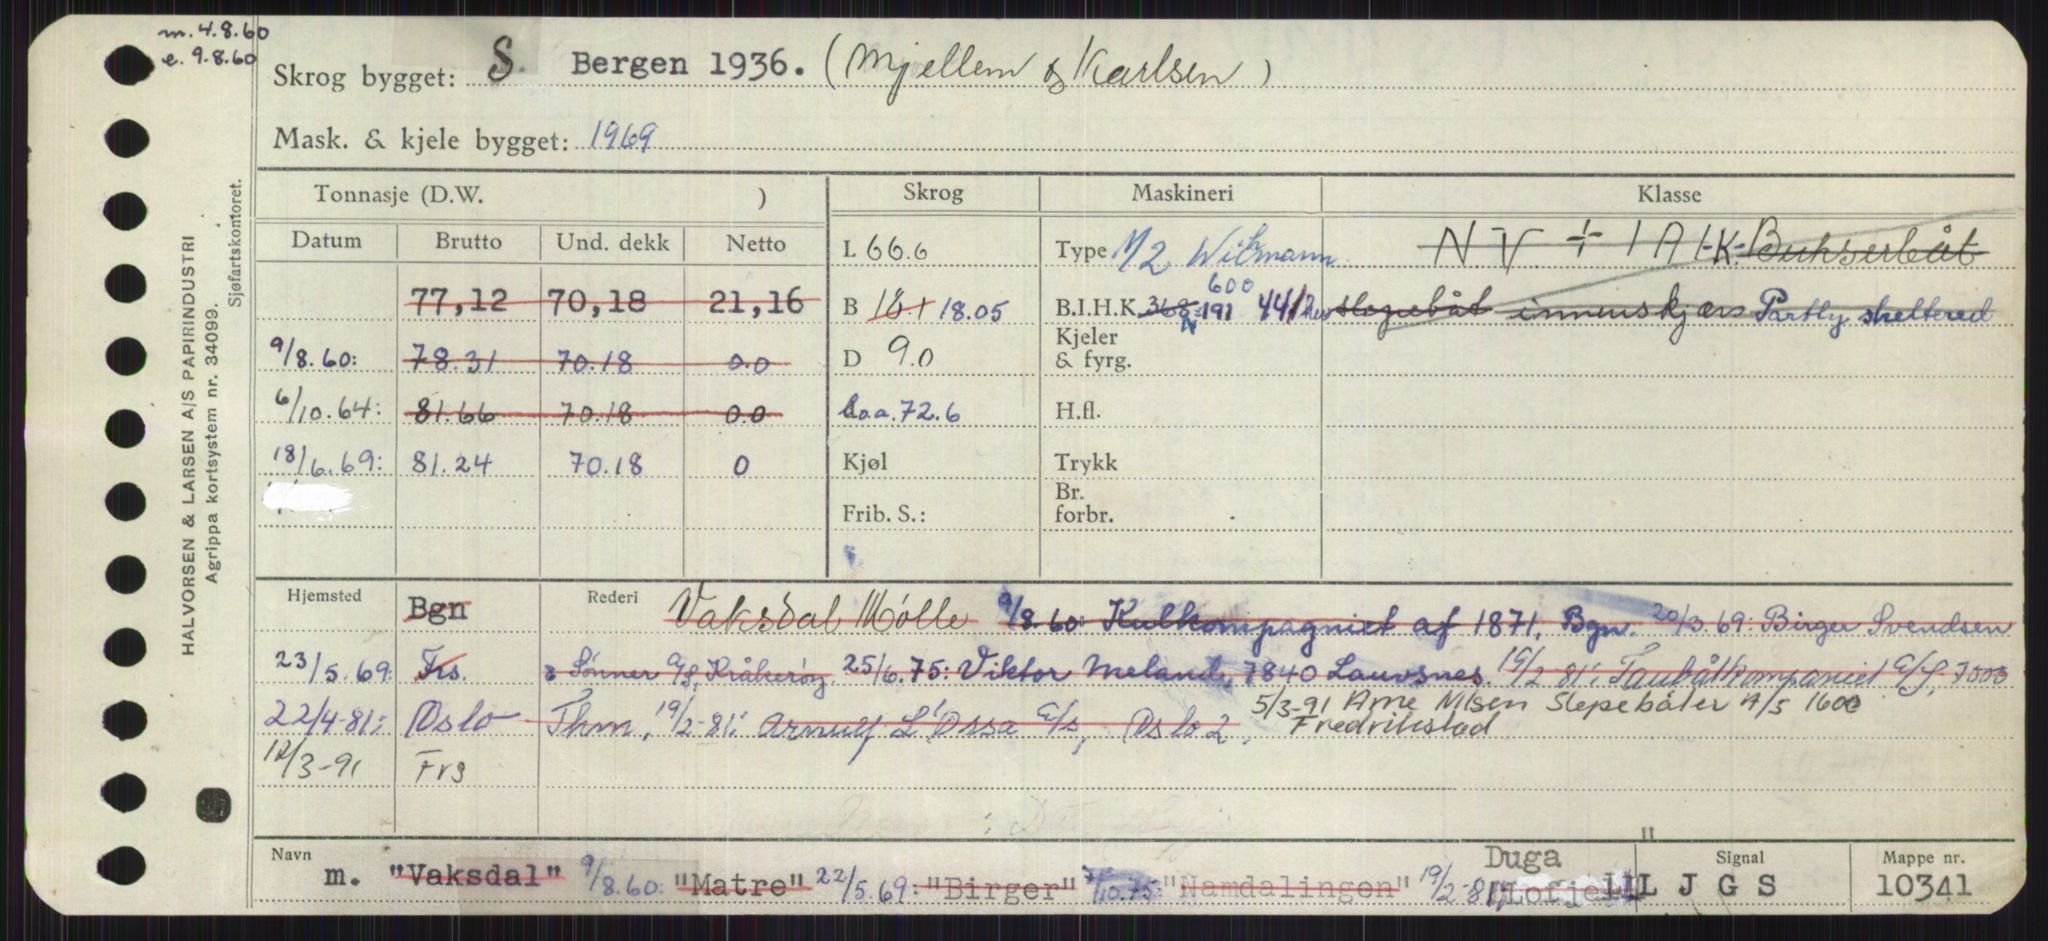 m. 4.8.60
e. 9.8.60
Skrog bygget: S. Bergen 1936. (Mjellem & Karlsen)
Mask. & kjele bygget: 1969
HALVORSEN & LARSEN A/S PAPIRINDUSTRI
Agrippa kortsystem nr. 34099.
Sjøfartskontoret.
Tonnasje (D.W. ) Skrog Maskineri Klasse
Datum Brutto Und. dekk Netto L 66.6 Type M 2 Wikmann NV + 1A1-K-Bukserbåt
600
77,12 70,18 21,16 B 18.1 18.05 B.I.H.K. 368 = 191 441 slepebåt innenskjærs Partly sheltered
N
9/8.60: 78.31 70.18 0.0 D 9.0 Kjeler & fyrg.
6/10.64: 81.66 70.18 0.0 Lo.a. 72.6 H.fl.
18/6.69: 81.24 70.18 0 Kjøl Trykk
Frib. S.: Br. forbr.
Hjemsted Bgn Rederi Vaksdal Mølle 9/8.60: Kulkompagniet af 1871, Bgn. 20/3 69: Birger Svendsen
23/5.69: Frs. & Sønner a/s, Kråkerøy 25/6.75: Viktor Meland, 7840 Lauvsnes. 19/2-81: Taubåtkompaniet A/S, 7000
22/4-81: Oslo Thm, 19/2-81: Arnulf L'Orsa A/s, Oslo 2, 5/3-91 Arne Nilsen Slepebåter A/S 1600
Fredrikstad
12/3-91 Frs
Navn Duga " Signal Mappe nr.
m. "Vaksdal" 9/8.60: "Matre" 22/5.69: "Birger" 7/10.75: "Namdalingen" 19/2-81: "Lofjell" L J G S 10341